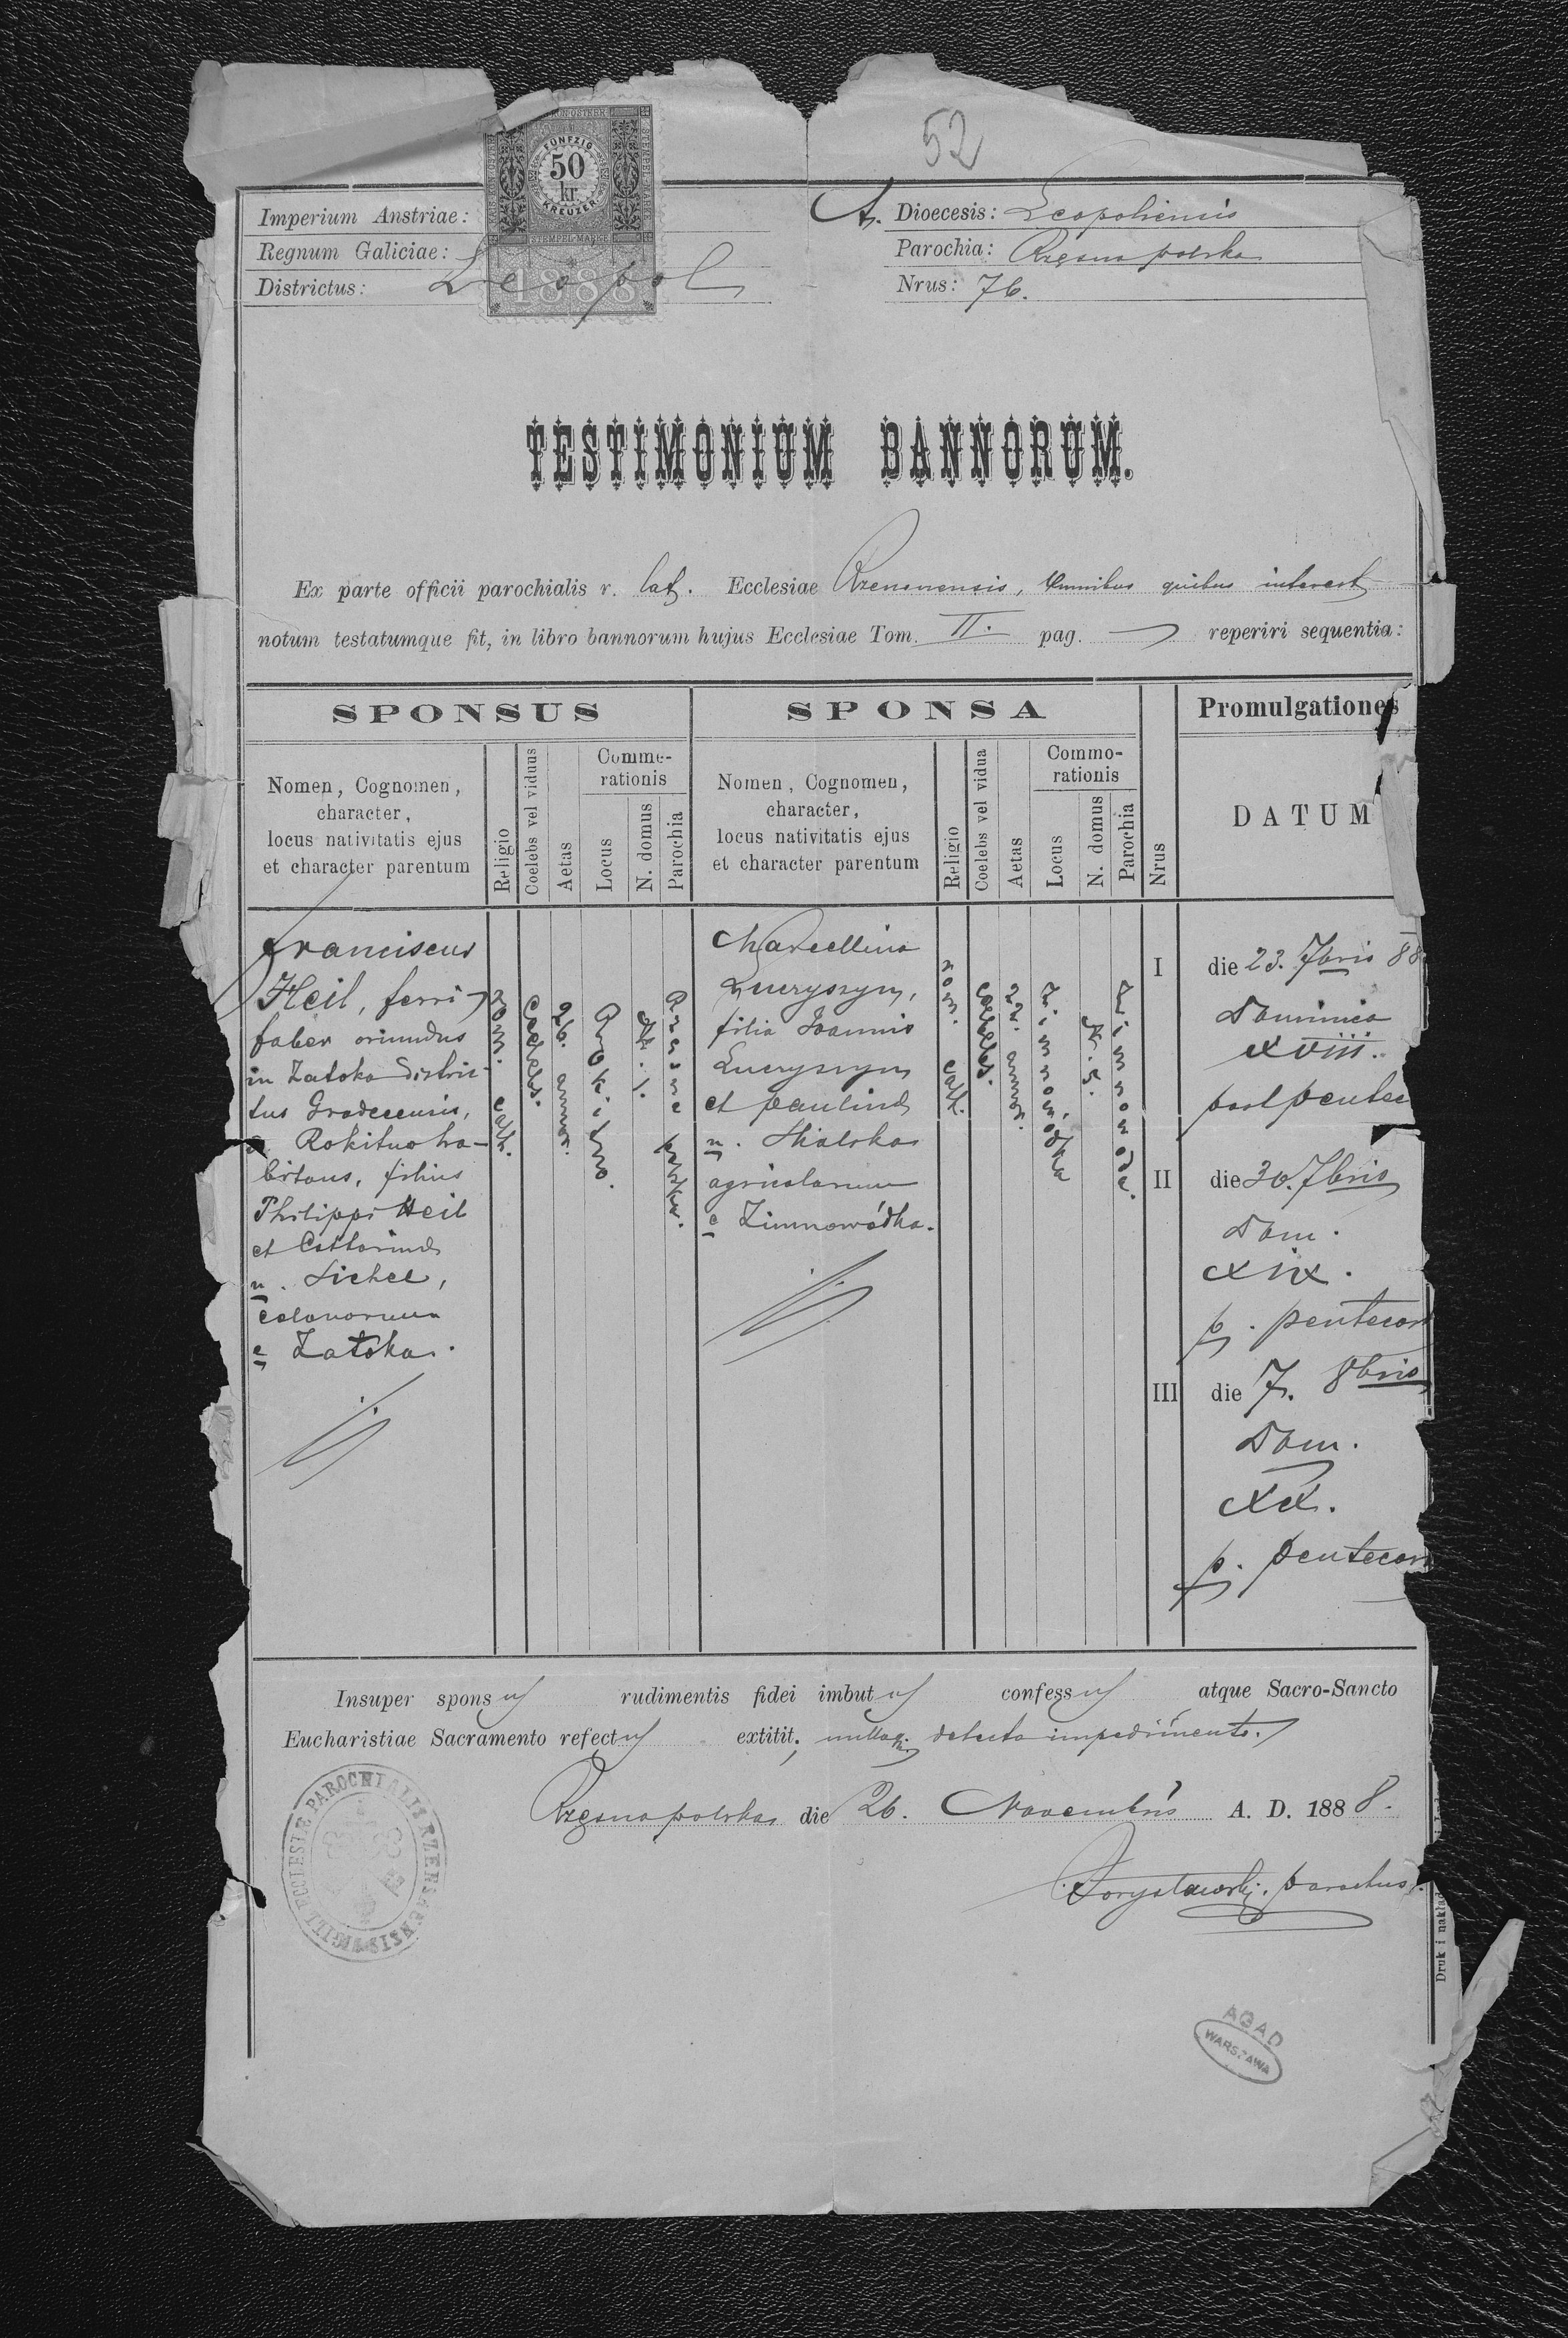 52
FÜNFZIG
50
kr.
KREUZER
STEMPEL-MARKE
1888
Imperium Anstriae:
Regnum Galiciae:
Districtus: Leopol
A. Dioecesis: Leopoliensis
Parochia: Rzęsna polska
Nrus: 76.
TESTIMONIUM BANNORUM.
Ex parte officii parochialis r. lat. Ecclesiae Rzesnensis, Omnibus quibus interest
notum testatumque fit, in libro bannorum hujus Ecclesiae Tom. II. pag. reperiri sequentia:
SPONSUS
Nomen, Cognomen,
character,
locus nativitatis ejus
et character parentum
Religio
Coelebs vel viduus
Aetas
Commo-
rationis
Locus
N. domus
Parochia
Franciscus
Heil, ferri-
faber oriundus
in Zatoka distric-
tus Grodecensis,
a Rokitno ha-
bitans, filius
Philippi Heil
et Catharinae
n. Sichel,
colonorum
e Zatoka.
rom. cath.
coelebs.
26. annor.
Rokitno.
N. 1.
Rzęsna polska.
SPONSA
Nomen, Cognomen,
character,
locus nativitatis ejus
et character parentum
Religio
Coelebs vel vidua
Aetas
Commo-
rationis
Locus
N. domus
Parochia
Marcellina
filia Joannis
et Paulinae
agricolarum
e Zimnowódka.
rom. cath.
coelebs.
22. annor.
Zimnowódka
N. 5.
Zimnowoda.
Nrus
Promulgationes
DATUM
I die 23. 7bris 88
Dominica
XVIII.
post pentec
II die 30. 7bris
Dom.
XIX.
p. pentecos
III die 7. 8bris
Dom.
XX.
p. pentecos
Insuper sponsus rudimentis fidei imbutus confessus atque Sacro-Sancto
Eucharistiae Sacramento refectus extitit; nulloq. detecto impedimento.
Rzęsna polska die 26. Novembris A. D. 1888.
parochus.
SIGILL ECCLESIE PAROCHIALIS RZESNENSIS
Druk i nakład
AGAD
WARSZAWA